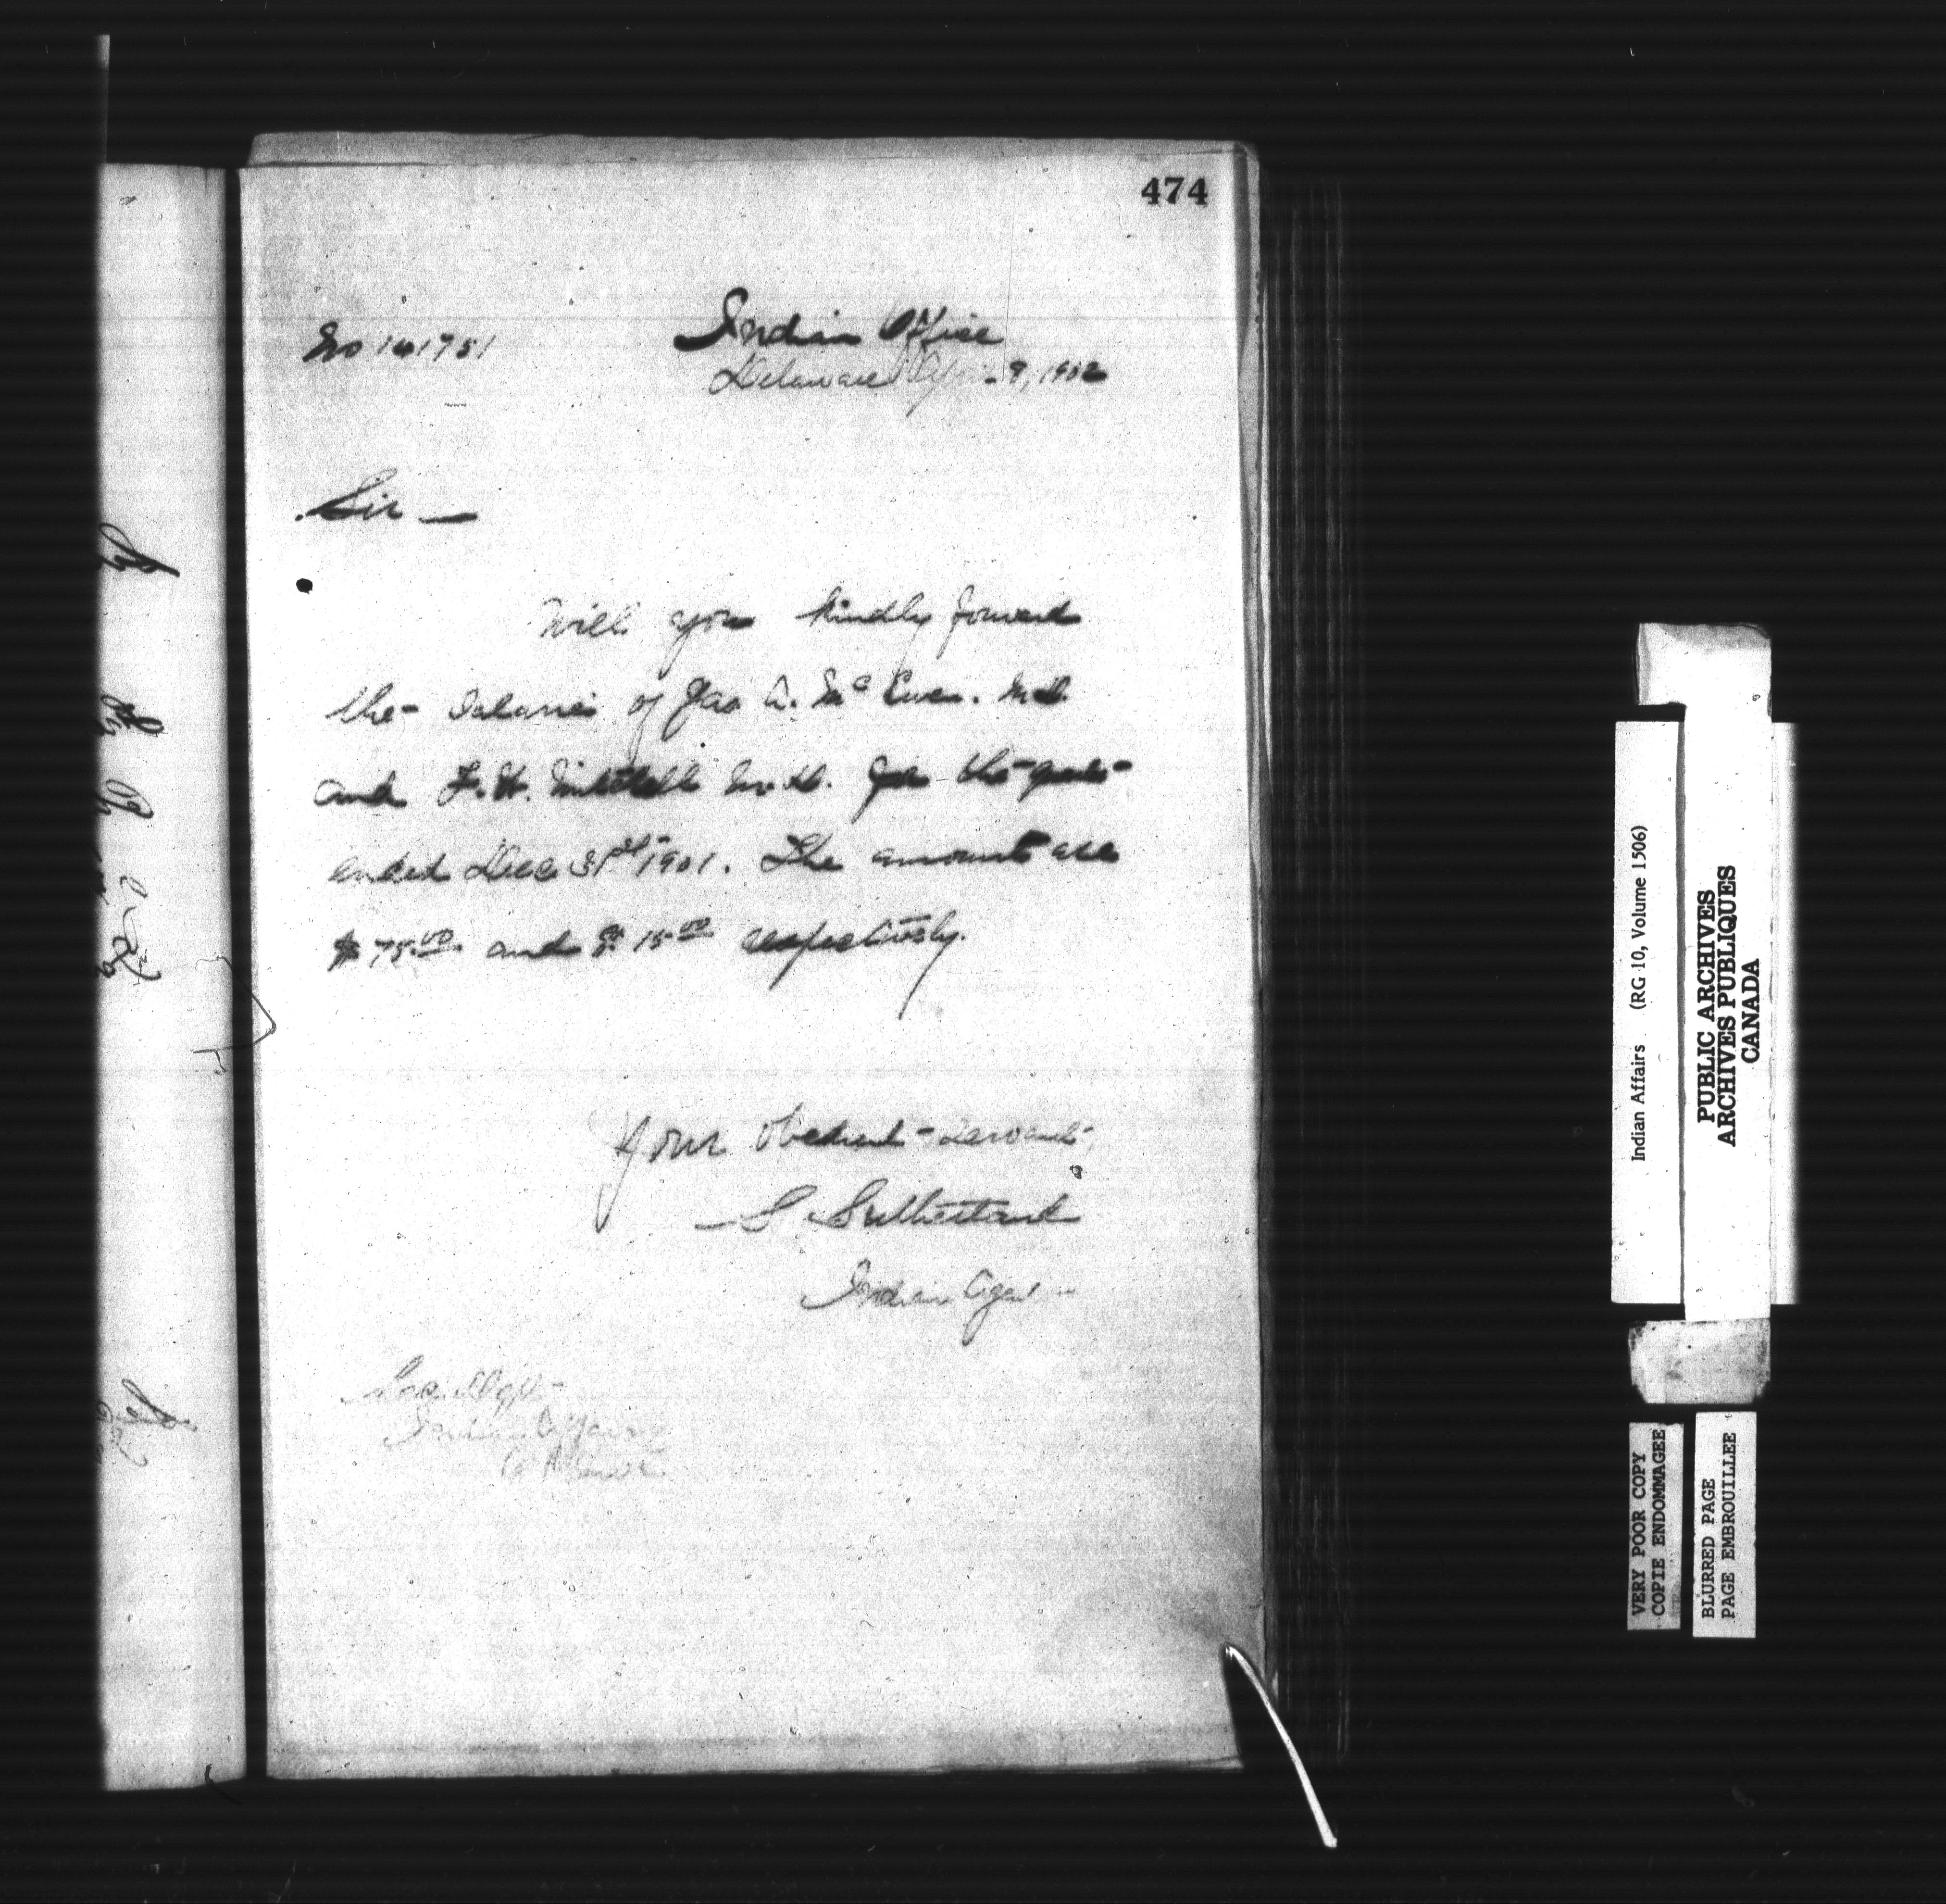 474
No 141751
Indian Office
Delaware April 9, 1902
Sir —
Will you kindly forward
the salaries of Jno A. Mc Ewen. M.D.
and F. H. Mitchell M.D. for the quar-
ended Dec 31st 1901. The amounts are
$ 75.00 and $ 15.00 respectively.
Your Obedient Servant,
S Sutherland
Indian Agent
Sec. Dept
Indian Affairs
Ottawa
Indian Affairs (RG 10, Volume 1506)
PUBLIC ARCHIVES
ARCHIVES PUBLIQUES
CANADA
VERY POOR COPY
COPIE ENDOMMAGEE
BLURRED PAGE
PAGE EMBROUILLEE